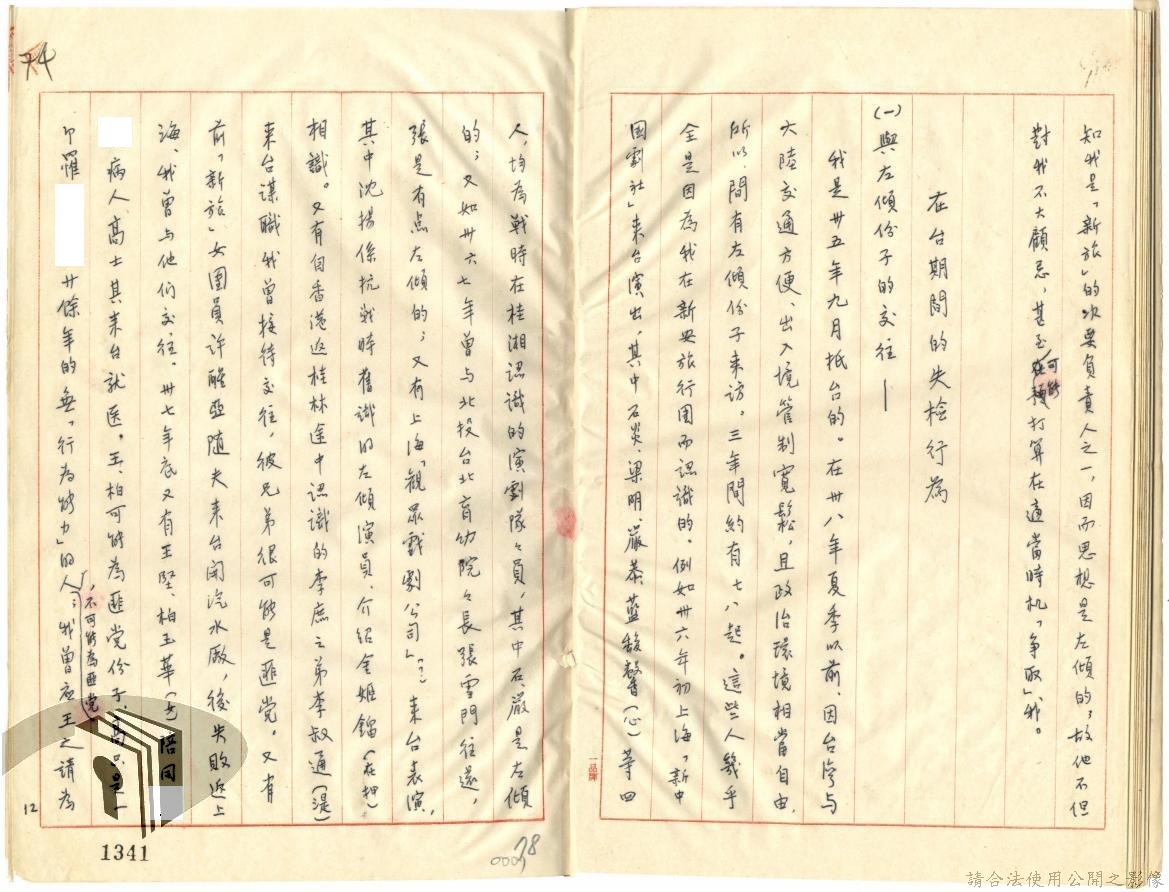 知我是「新旅」的次要負責人之一，因而思想是左傾的；故他不但
對我不大顧忌，甚至可能打算在適當時机「争取」我。
在台期間的失檢行為
(一)與左傾份子的交往——
我是卅五年九月抵台的。在卅八年夏季以前，因台灣与
大陸交通方便、出入境管制寬鬆，且政治環境相當自由，
所以間有左傾份子来访。三年間約有七八起。這些人幾乎
全是因為我在新安旅行団而認識的。例如卅六年初上海「新中
国劇社」来台演出，其中石炎、梁明、嚴恭、藍馥馨(心)等四
人，均為戰時在桂湘認識的演劇隊々員，其中石、嚴是左傾
的；又如卅六七年曾与北投台北育幼院々長張雪門往還，
張是有点左傾的；又有上海「觀眾戲劇公司」(?)来台表演，
其中沈揚係抗战時舊識的左傾演員、介紹金姬鎦(在押)
相識。又有自香港返桂林途中認識的李庶之弟李叔通(湜)
来台謀職我曾接待交往，彼兄弟很可能是匪党。又有
前「新旅」女團員許醒亞随夫来台開汽水廠，後失敗返上
海，我曾与他们交往。卅七年底又有王堅、柏玉華(女)陪同
病人高士其来台就医。王、柏可能為匪党份子，高只是一
个罹
廿餘年的無「行為能力」的人，不可能為匪党；我曾应王之請為
74
12
1341
78
一品牌
請合法使用公開之影像